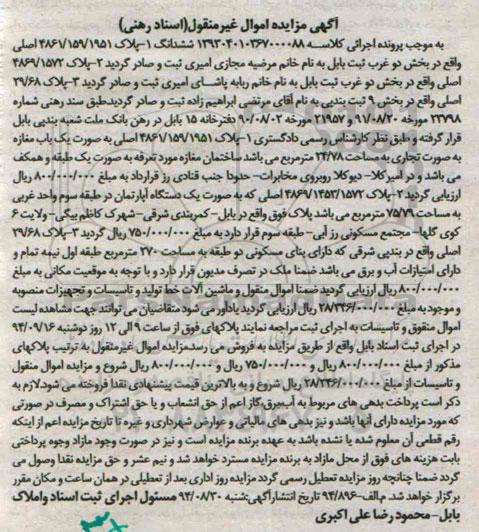 آگهی مزایده اموال غیرمنقول(اسناد رهنی)
به موجب پرونده اجرائی کلاسه ۱۳۹۳۰۴۰۱۰۳۶۷۰۰۰۰۸۸ ششدانگ ۱-پلاک ۴۸۶۱/۱۵۹/۱۹۵۱ اصلی
واقع در بخش دو غرب ثبت بابل به نام خانم مرضیه مجازی امیری ثبت و صادر گردید ۲-پلاک ۴۸۶۹/۱۵۷۲
اصلی واقع در بخش دو غرب ثبت بابل به نام خانم ربابه پاشای امیری ثبت و صادر گردید ۳-پلاک ۲۹/۶۸
اصلی واقع در بخش ۹ ثبت بندپی به نام آقای مرتضی ابراهیم زاده ثبت و صادر گردید.طبق سند رهنی شماره
۲۳۷۹۸ مورخه ۹۱/۰۸/۲۰ و ۲۱۹۵۷ مورخه ۹۰/۰۸/۰۲ دفترخانه ۱۵ بابل در رهن بانک ملت شعبه بندپی بابل
قرار گرفته و طبق نظر کارشناس رسمی دادگستری ۱-پلاک ۴۸۶۱/۱۵۹/۱۹۵۱ اصلی به صورت یک باب مغازه
به صورت تجاری به مساحت ۲۴/۷۸ مترمربع می باشد ساختمان مغازه مورد تعرفه به صورت یک طبقه و همکف
می باشد و در امیرکلا- دیوکلا روبروی مخابرات- حدودا جنب قنادی رز قرارداد به مبلغ ۸۰۰/۰۰۰/۰۰۰ ریال
ارزیابی گردید ۲-پلاک ۴۸۶۹/۱۴۵۳/۱۵۷۲ اصلی که به صورت یک دستگاه آپارتمان در طبقه سوم واحد غربی
به مساحت ۷۵/۷۹ مترمربع می باشد پلاک فوق واقع در بابل- کمربندی شرقی- شهرک کاظم بیگی- ولایت ۶
کوی گلها- مجتمع مسکونی رز آبی- طبقه سوم قرار دارد به مبلغ ۷۵۰/۰۰۰/۰۰۰ ریال گردید ۳-پلاک ۲۹/۶۸
اصلی واقع در بندپی شرقی که دارای بنای مسکونی دو طبقه به مساحت ۲۷۰ مترمربع طبقه اول نیمه تمام و
دارای امتیازات آب و برق می باشد ضمنا ملک در تصرف مدیون قرار دارد و با توجه به موقعیت مکانی به مبلغ
۸۰۰/۰۰۰/۰۰۰ ریال ارزیابی گردید ضمنا اموال منقول و ماشین آلات خط تولید و تاسیسات و تجهیزات منصوبه
و موجود به مبلغ ۲۸/۲۴۶/۰۰۰/۰۰۰ ریال ارزیابی گردید یادآور می شود متقاضیان می توانند جهت مشاهده لیست
اموال منقول و تاسیسات به اجرای ثبت مراجعه نمایند پلاکهای فوق از ساعت ۹ الی ۱۲ روز دوشنبه ۹۴/۰۹/۱۶
در اجرای ثبت اسناد بابل واقع از طریق مزایده به فروش می رسد.مزایده اموال غیرمنقول به ترتیب پلاکهای
مذکور از مبلغ ۸۰۰/۰۰۰/۰۰۰ ریال و ۷۵۰/۰۰۰/۰۰۰ ریال و ۸۰۰/۰۰۰/۰۰۰ ریال شروع و مزایده اموال منقول
و تاسیسات از مبلغ ۲۸/۲۴۶/۰۰۰/۰۰۰ ریال شروع و به بالاترین قیمت پیشنهادی نقدا فروخته می شود.لازم به
ذکر است پرداخت بدهی های مربوط به آب،برق،گاز اعم از حق انشعاب و یا حق اشتراک و مصرف در صورتی
که مورد مزایده دارای آنها باشد و نیز بدهی های مالیاتی و عوارض شهرداری و غیره تا تاریخ مزایده اعم از اینکه
رقم قطعی آن معلوم شده یا نشده باشد به عهده برنده مزایده است و نیز در صورت وجود مازاد وجوه پرداختی
بابت هزینه های فوق از محل مازاد به برنده مزایده مسترد خواهد شد و نیم عشر و حق مزایده نقدا وصول می
گردد ضمنا چنانچه روز مزایده تعطیل رسمی گردد مزایده روز اداری بعد از تعطیلی در همان ساعت و مکان مقرر
برگزار خواهد شد. م.الف-۹۴/۸۹۶ تاریخ انتشارآگهی:شنبه ۹۴/۰۸/۳۰ مسئول اجرای ثبت اسناد واملاک
بابل-محمود رضا علی اکبری